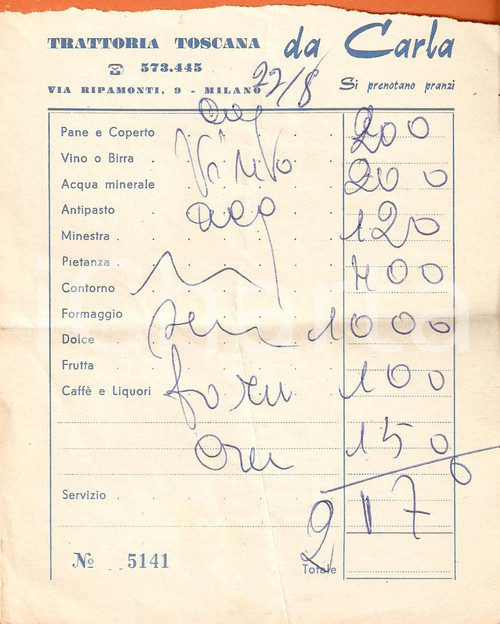 TRATTORIA TOSCANA da Carla
☏ 573.445
VIA RIPAMONTI, 9 - MILANO 22/8 Si prenotano pranzi
Pane e Coperto 200
Vino o Birra Vino
Acqua minerale 200
Antipasto
Minestra 120
Pietanza
Contorno 400
Formaggio 1000
Dolce
Frutta
Caffè e Liquori 100
150
Servizio 2170
Nº 5141
Totale